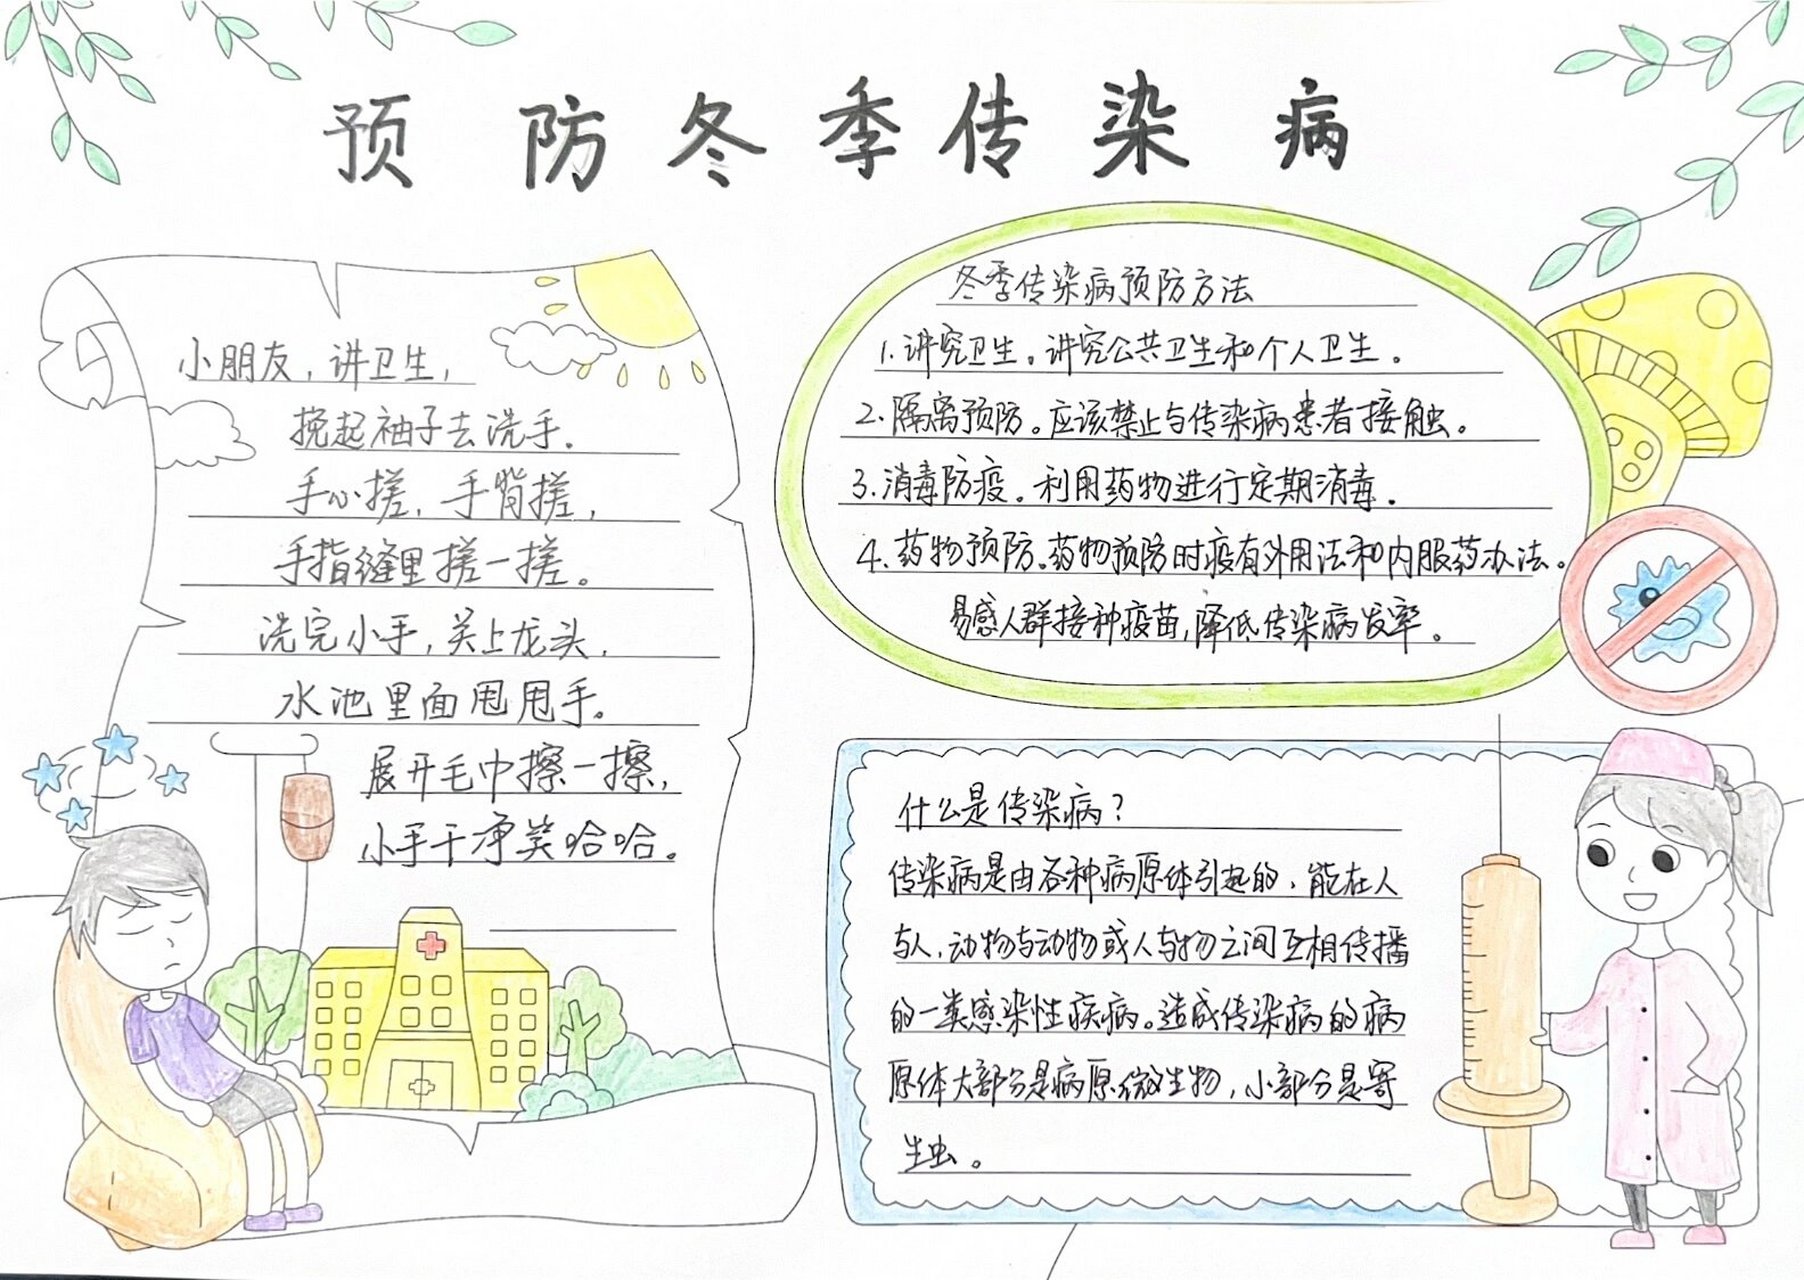 预防冬季传染病
小朋友，讲卫生，
挽起袖子去洗手.
手心搓，手背搓，
手指缝里搓一搓。
洗完小手，关上龙头，
水池里面甩甩手。
展开毛巾擦一擦，
小手干净笑哈哈。
冬季传染病预防方法
1.讲究卫生。讲究公共卫生和个人卫生。
2.隔离预防。应该禁止与传染病患者接触。
3.消毒防疫。利用药物进行定期消毒。
4.药物预防。药物预防时疫有外用法和内服药办法。
易感人群接种疫苗,降低传染病发率。
什么是传染病？
传染病是由各种病原体引起的，能在人
与人，动物与动物或人与物之间互相传播
的一类感染性疾病。造成传染病的病
原体大部分是病原微生物，小部分是寄
生虫。